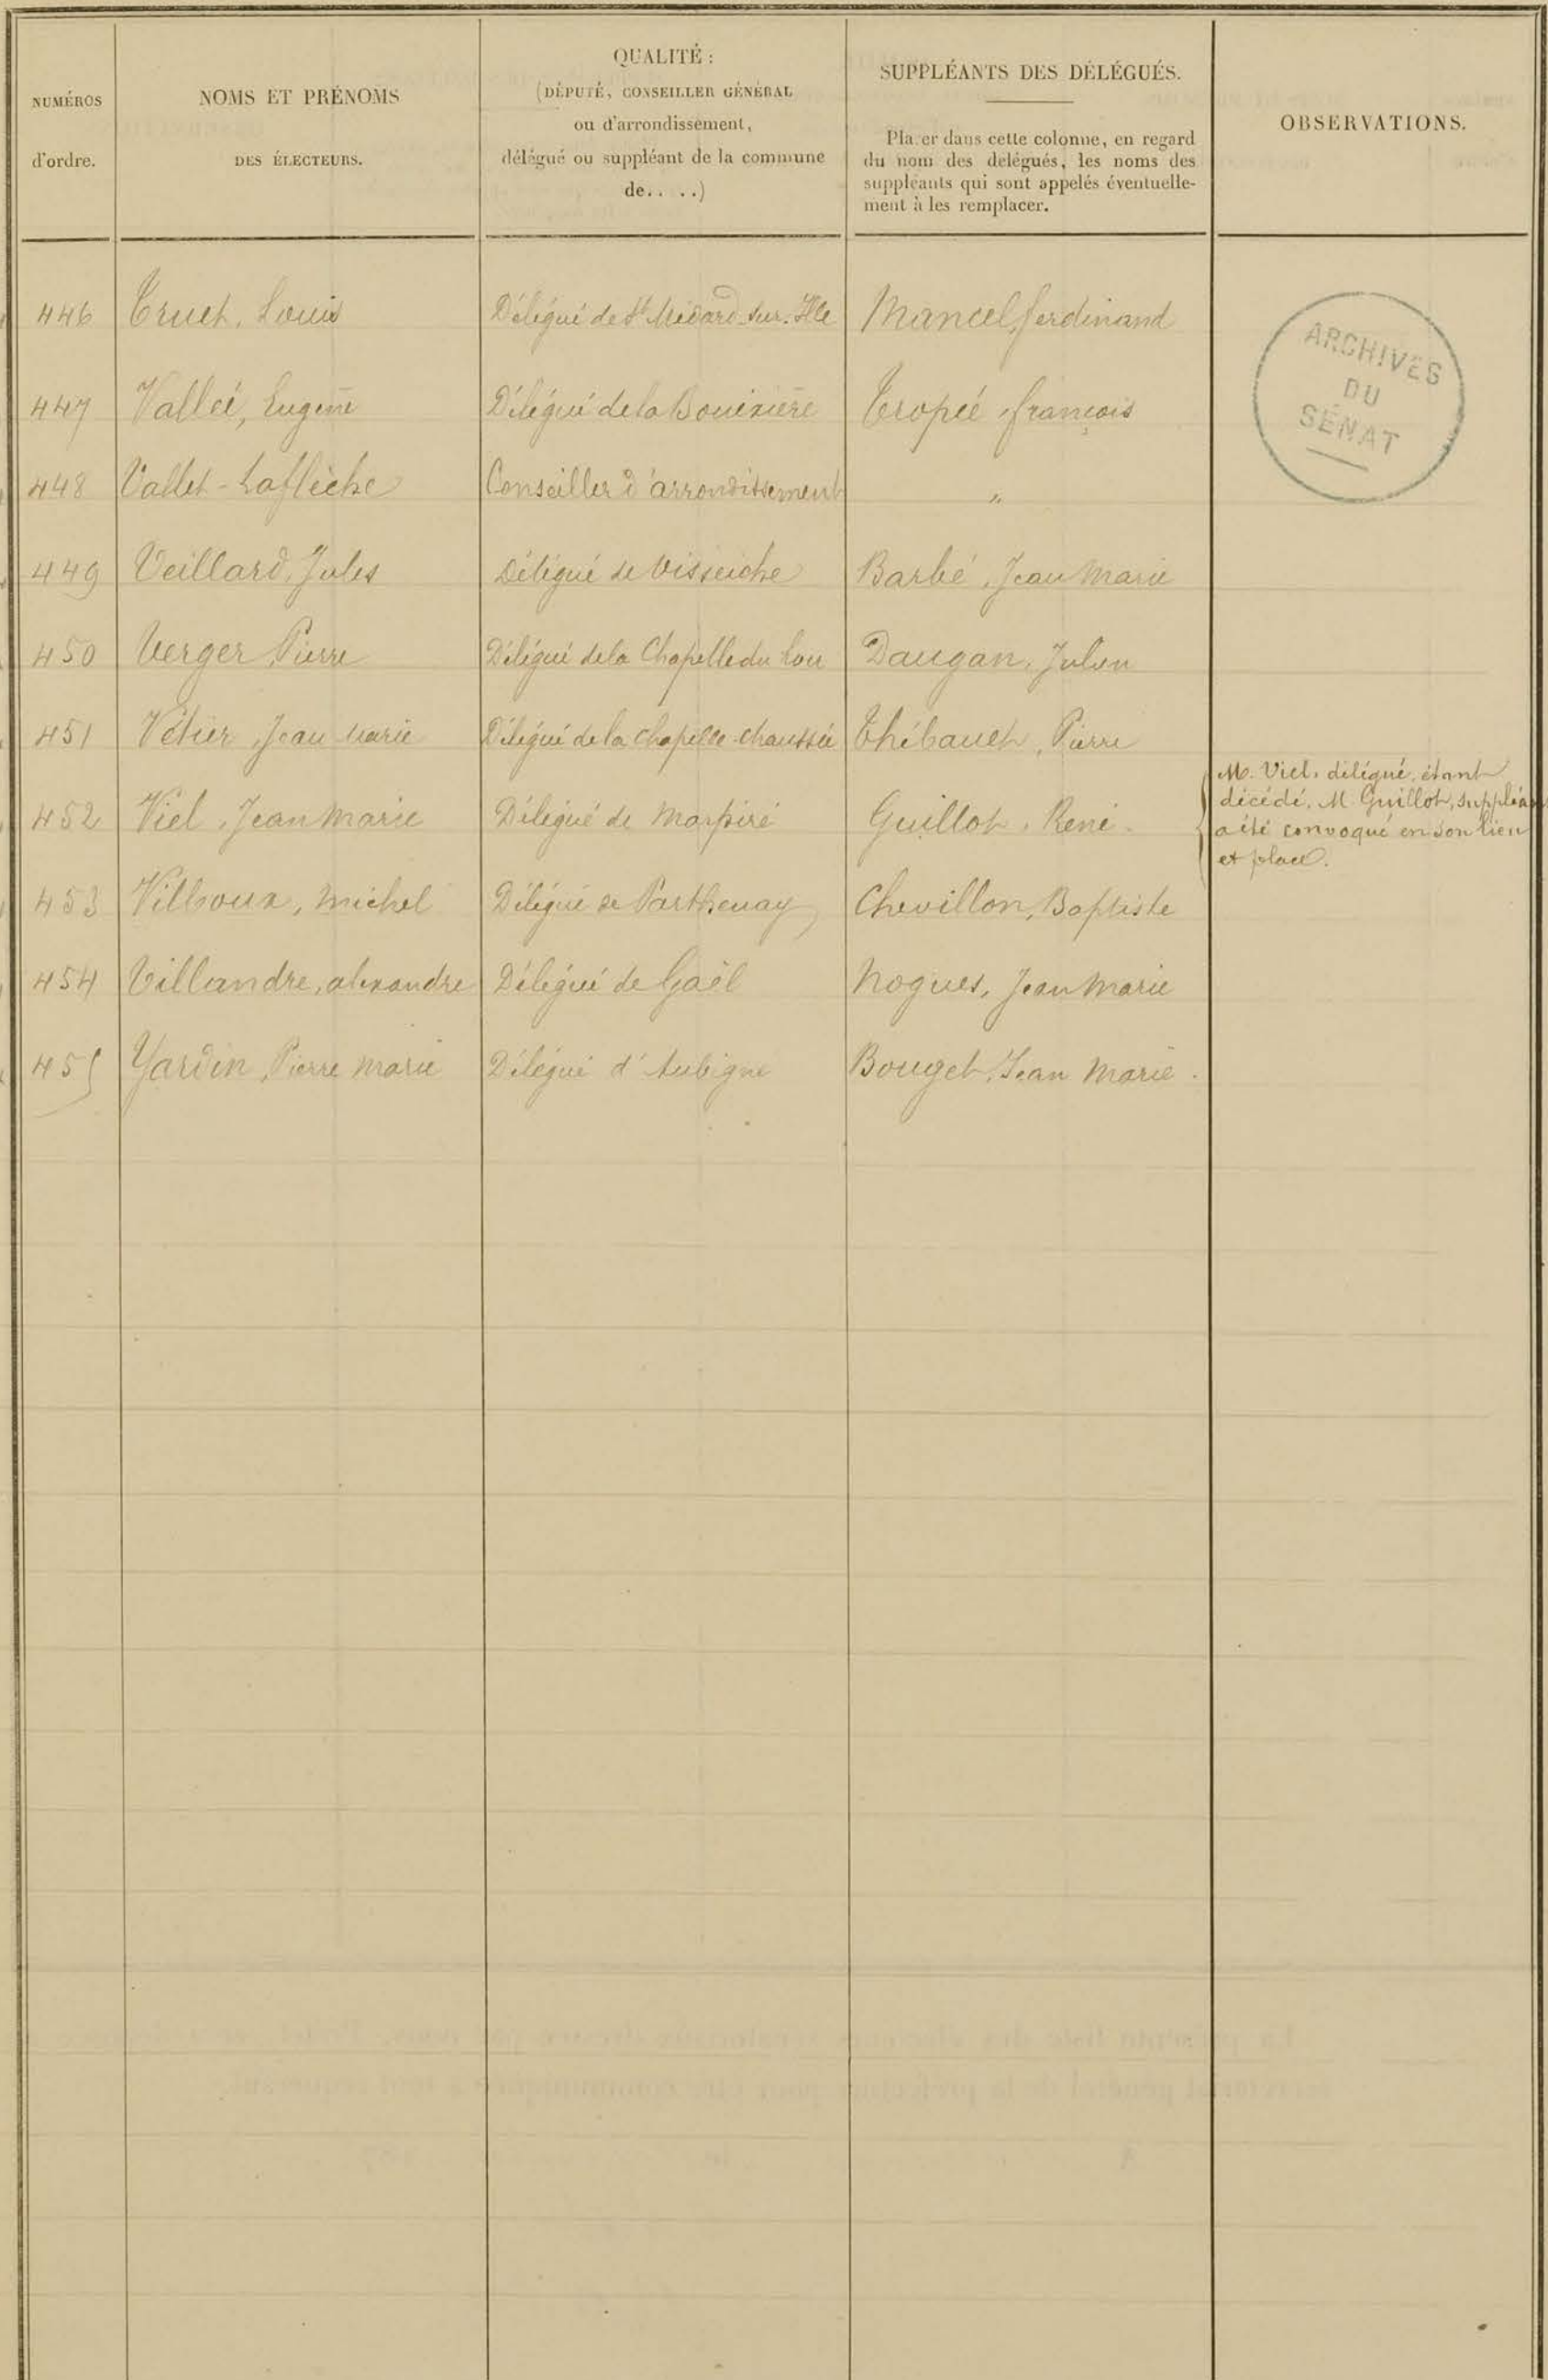 NUMÉROS
d'ordre.
NOMS ET PRÉNOMS
DES ÉLECTEURS.
QUALITÉ :
(DÉPUTÉ, CONSEILLER GÉNÉRAL
ou d'arrondissement,
délégué ou suppléant de la commune
de.. ..)
SUPPLÉANTS DES DÉLÉGUÉS.
Pla er dans cette colonne, en regard
du nom des délégués, les noms des
suppléants qui sont appelés éventuelle-
ment à les remplacer.
OBSERVATIONS.
446 Truet, Louis Délégué de St Médard-sur-Ille Mancel, ferdinand
447 Valleé, Eugène Délégué de la Bouëxière Tropée, françois
448 Vallet-Laflèche Conseiller d'arrondissement "
449 Veillard, Jules Délégué de Visseiche Barbé, Jean Marie
450 Verger, Pierre Délégué de la Chapelle du Lou Daugan, Julien
451 Vétier, Jean Marie Délégué de la Chapelle-chaussée Thébault, Pierre
452 Viel, Jean Marie Délégué de Marpiré Guillot, René.
M. Viel, délégué, étant
décédé, M. Guillot, suppléan
a été convoqué en son lieu
et place.
453 Villoux, Michel Délégué de Parthenay Chevillon, Baptiste
454 Villandre, alexandre Délégué de Gaël Nogues, Jean Marie
455 Yardin, Pierre Marie Délégué d'Aubigné Bouget, Jean Marie.
ARCHIVES
DU
SÉNAT